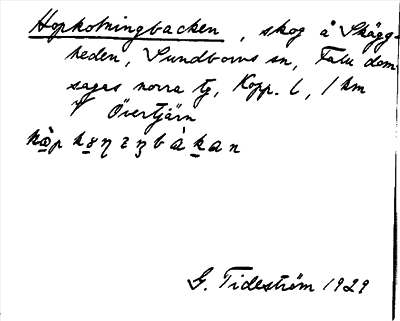 Hopkotningbacken, skog å Skägg-
heden, Sundborns sn, Falu dom-
sagas norra tg, Kopp. l, 1 km
V Övertjärn
G. Tideström 1929